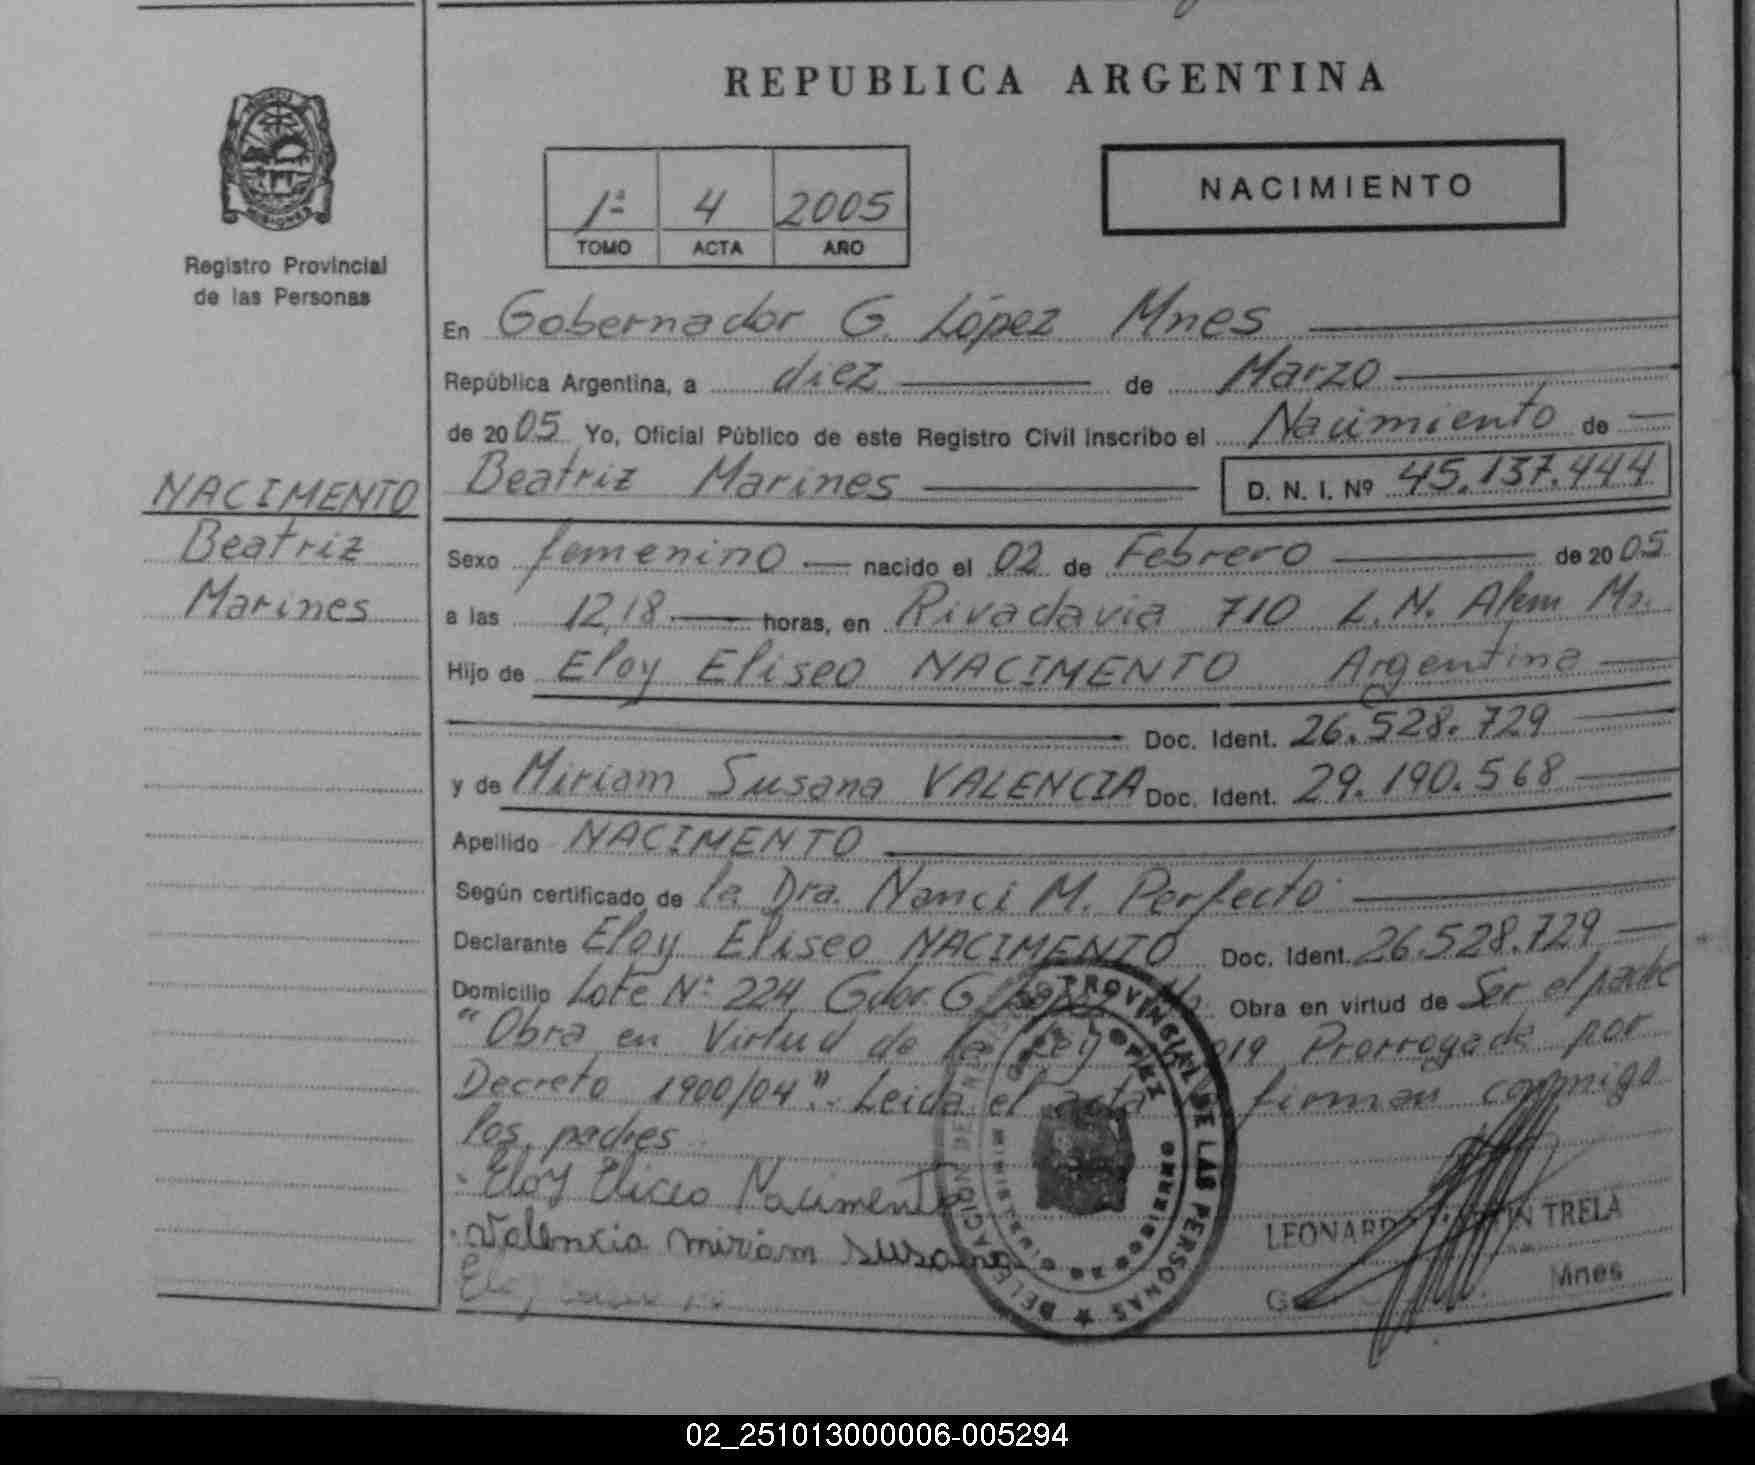 REPUBLICA ARGENTINA
NACIMIENTO
1ª 4 2005
TOMO ACTA AÑO
Registro Provincial
de las Personas
En Gobernador G. López Mnes
República Argentina, a diez de Marzo
de 2005 Yo, Oficial Público de este Registro Civil inscribo el Nacimiento de
Beatriz Marines D. N. I. Nº 45.137.444
NACIMENTO
Beatriz
Marines
Sexo femenino nacido el 02 de Febrero de 2005
a las 12,18 horas, en Rivadavia 710 L. N. Alem Ms.
Hijo de Eloy Eliseo NACIMENTO Argentina
Doc. Ident. 26.528.729
y de Miriam Susana VALENCIA Doc. Ident. 29.190.568
Apellido NACIMENTO
Según certificado de la Dra. Nanci M. Perfecto
Declarante Eloy Eliseo NACIMENTO Doc. Ident. 26.528.729
Domicilio Lote Nº 224 Gdor. G. López Obra en virtud de Ser el padre
"Obra en Virtud de la Ley Prorrogada por
Decreto 1900/04". Leida el acta firman conmigo
los padres
Eloy Eliceo Nacimento
Valencia miriam Susana
PROVINCIAL DE LAS PERSONAS
LOPEZ
MISIONES
TRELA
Mnes
02_251013000006-005294